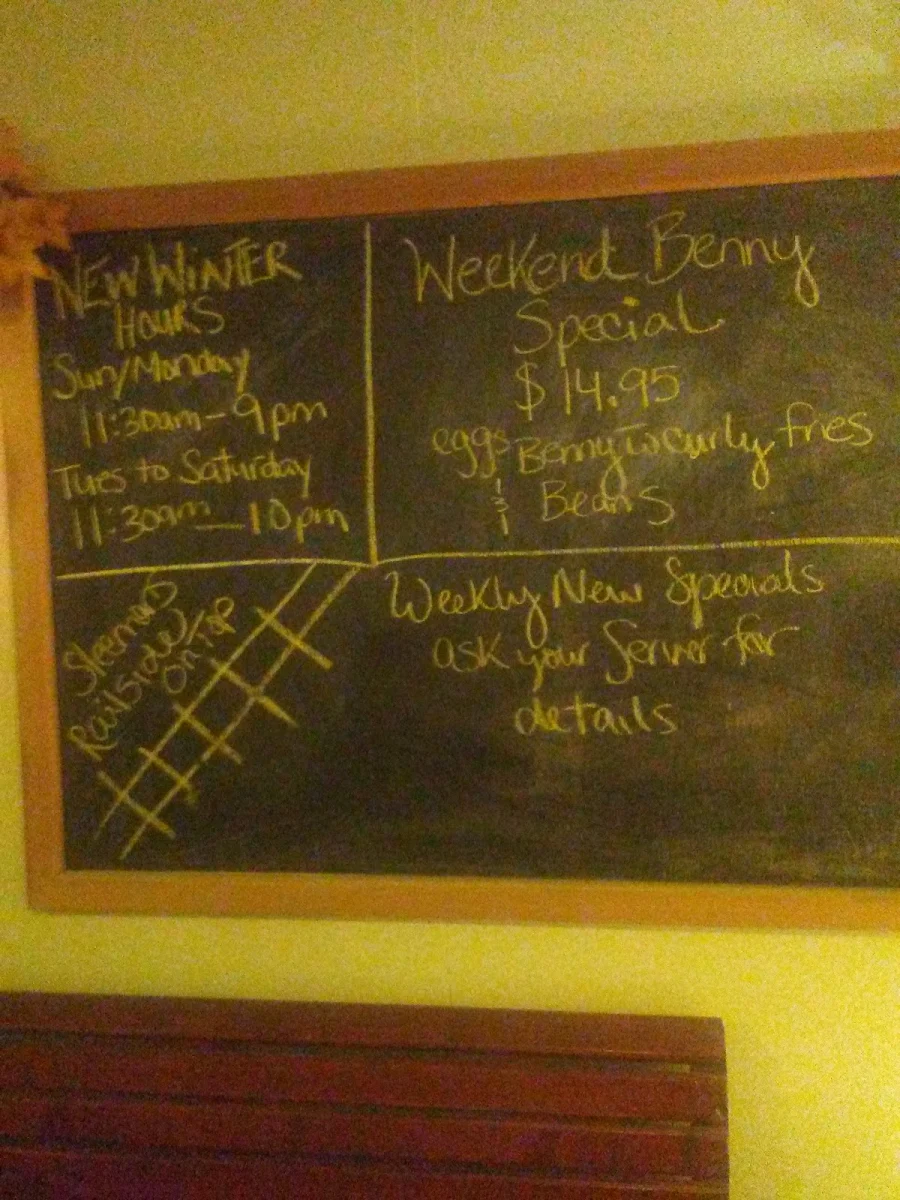 NEW WINTER
HOURS
Sun/Monday
11:30am - 9pm
Tues to Saturday
11:30am - 10pm
Weekend Benny
Special
$14.95
eggs Benny w curly fries
& Beans
Sleemans
Railside
on tap
Weekly New Specials
ask your Server for
details